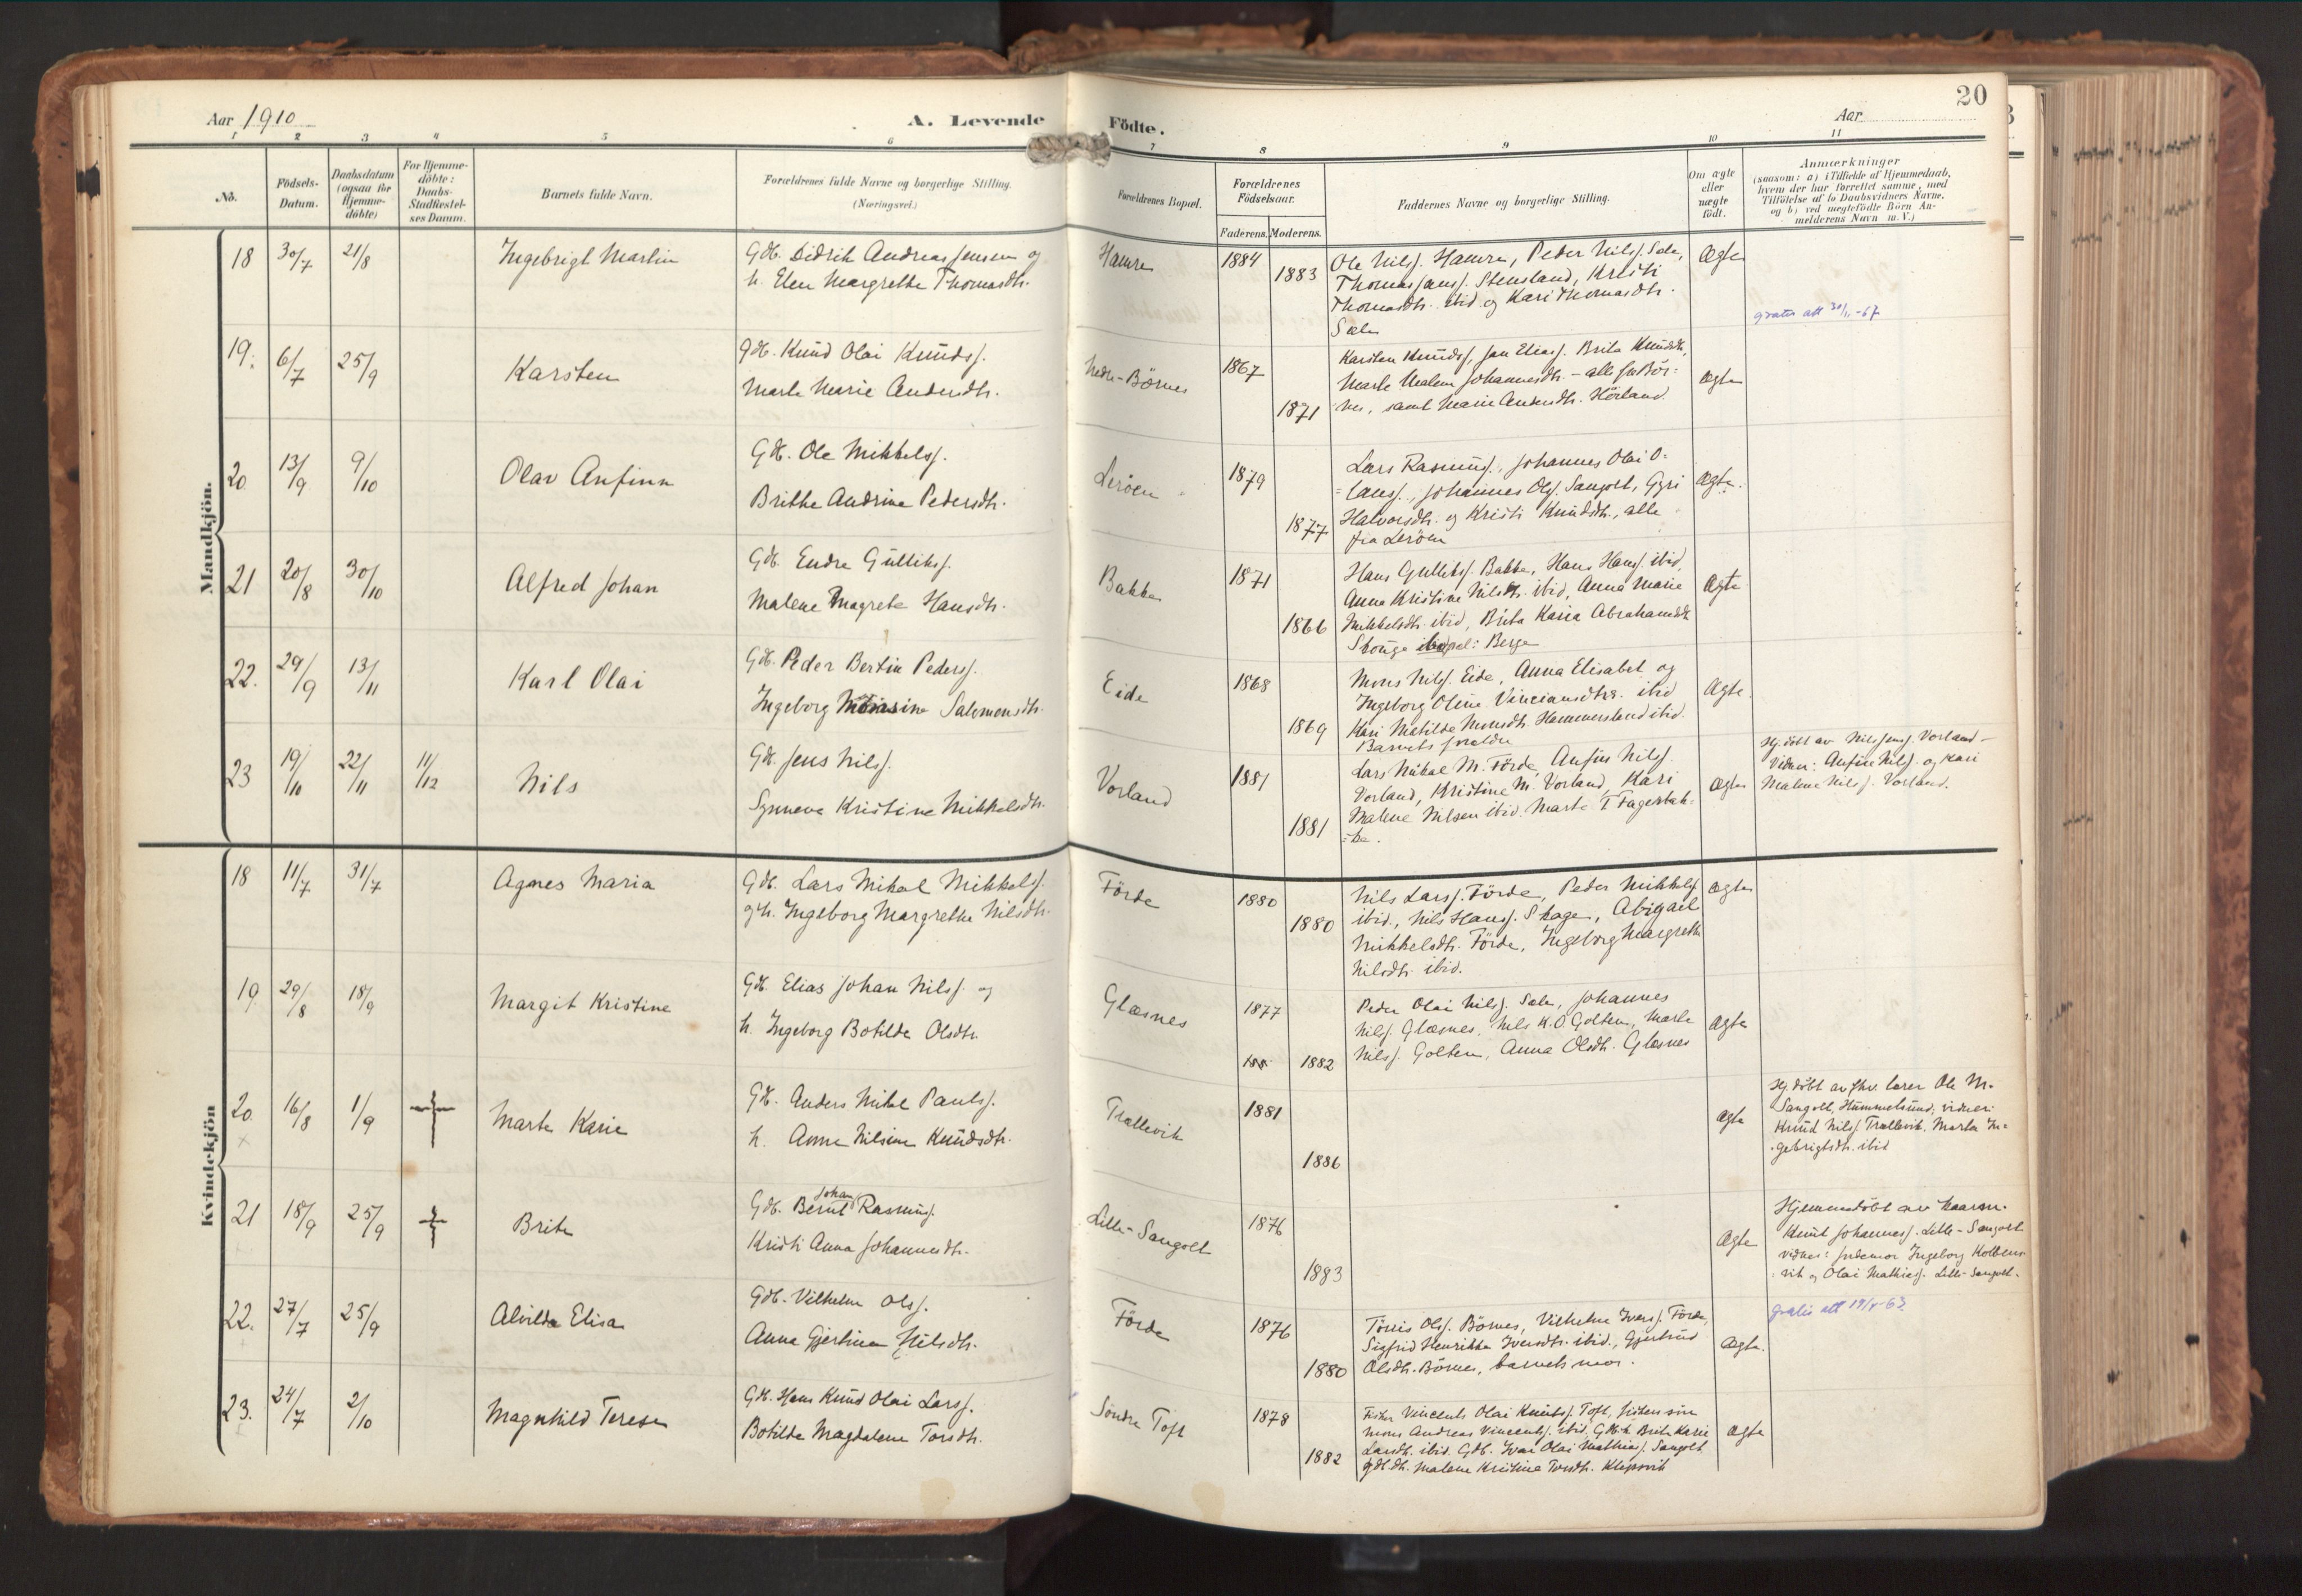 20
Aar 1910
A. Levende
Födte.
Aar
1 2 3 4 5 6
7 8 9 10 11
No.
Födsels-
Datum.
Daabsdatum
(ogsaa for
Hjemme-
döbte)
For Hjemme-
döbte:
Daabs-
Stadfæstel-
ses Datum.
Barnets fulde Navn.
Forældrenes fulde Navne og borgerlige Stilling.
(Næringsvei.)
Forældrenes Bopæl.
Forældrenes
Födselsaar.
Faderens. Moderens.
Faddernes Navne og borgerlige Stilling.
Om ægte
eller
uægte
födt.
Anmærkninger
(saasom: a) i Tilfælde af Hjemmedaab,
hvem der har forrettet samme, med
Tilföielse af to Daabsvidners Navne,
og b) ved uægtefödte Börn An-
melderens Navn m. V.)
Mandkjön.
18 30/7 21/8 Ingebrigt Martin
Gdb. Didrik Andreas Jensen og
h. Elen Margrethe Thomasdtr.
Hamre 1884 1883
Ole Nilsf. Hamre, Peder Nilsf. Sale,
Thomas Jansf. Stensland, Kristi
Thomasdtr. ibid og Kari Thomasdtr.
Sale
Ægte
gratis att 30/11-67
19. 6/7 25/9 Karsten
Gdb. Knud Olai Knudsf.
Marte Marie Andersdtr.
Nedre-Börnes 1867 1871
Karsten Knudsf, Jan Eliasf. Brita Knudsdtr,
Marte Malene Johannesdtr. - alle fra Bör=
nes, samt Marie Andersdtr. Hörland
ægte
20 13/9 9/10 Olav Anfinn
Gdb. Ole Mikkelsf.
Brithe Andrine Pedersdtr.
Leröen 1879 1877
Lars Rasmusf., Johannes Olai O=
=lausf., Johannes Olsf. Sangolt, Gyri
Halvorsdtr. og Kristi Knudsdtr., alle
fra Leröen
ægte.
21 20/8 30/10 Alfred Johan
Gdb. Endre Gulliksf.
Malene Magrete Hansdtr.
Bakke 1871 1866
Hans Gulliksf. Bakke, Hans Hansf. ibid,
Anna Kristine Nilsdtr. ibid, Anna Marie
Mikkelsdtr. ibid, Brita Karia Abrahamsdtr
ægte
22. 29/9 13/11 Karl Olai
Gdb. Peder Bertin Pedersf.
Ingeborg Salomonsdtr.
Eide 1868 1869
Mons Nilsf. Eide, Anna Elisabet og
Ingeborg Oline Vinciansdtre. ibid
Kari Matilde Monsdtr. Hammersland ibid.
Barnets forældre
ægte.
23 19/10 22/11 11/12 Nils
Gdb. Jens Nilsf.
Synneva Kristine Mikkelsdtr.
Vorland 1881 1881
Lars Mikal M. Förde, Anfin Nilsf.
Vorland, Kristine M. Vorland, Kari
Malene Nilsen ibid. Marta T Fagerbak=
=ke.
ægte
Hj. döbt av Nils Jensf. Vorland -
Vidner: Anfin Nilsf. og Kari
Malene Nilsf. Vorland.
Kvindekjön
18 11/7 31/7 Agnes Maria
Gdb. Lars Mikal Mikkelsf.
og h. Ingeborg Margrethe Nilsdtr.
Förde 1880 1880
Nils Larsf. Förde, Peder Mikkelsf
ibid., Nils Hansf. Skage, Abigael
Mikkelsdtr. Förde, Ingeborg Margrethe
Nilsdtr. ibid.
ægte
19 29/8 18/9 Margit Kristine
Gdb. Elias Johan Nilsf. og
h. Ingeborg Botilde Olsdtr.
Glæsnes 1877 1882
Peder Olai Nilsf. Sale, Johannes
Nilsf. Glæsnes, Nils K.O. Golten, Marte
Nilsf. Golten, Anna Olsdtr. Glæsnes
ægte
20 16/8 1/9 Marte Karie
Gdb. Anders Mikal Paulsf.
h. Anne Nilsine Knudsdtr.
Trællevik 1881 1886
ægte
Hj. döbt av fhv. lærer Ole M.
Sangolt, Hummelsund, vidner:
Knud Nilsf. Trællevik, Marta In=
gebrigtsdtr. ibid
21 18/9 25/9 Brite
Gdb. Bernt Johan Rasmusf.
Kristi Anna Johannesdtr.
Lille-Sangolt 1876 1883
ægte
Hjemmedöbt av
Knut Johannesf. Lille-Sangolt
vidner: jordemor Ingeborg Kolbens=
=vik og Olai Mathiasf. Lille-Sangolt.
22. 27/7 25/9 Alvilde Elisa
Gdb. Vilhelm Olsf.
Anna Gjertine Nilsdtr.
Förde 1876 1880
Tönnes Olsf. Börnes, Vilhelm Iversf. Förde,
Sigfrid Henrikke Iversdtr. ibid., Gjertrud
Olsdtr. Börnes, barnets mor.
ægte.
gratis att 19/5-63
23. 24/7 2/10 Magnhild Terese
Gdb. Hans Knud Olai Larsf.
Botilde Magdalene Torsdtr.
Söndre Toft 1878 1882
Fisker Vincents Olai Knutsf. Toft, fiskersön
Mons Andreas Vincentsf. ibid. Gdb.h. Brite Karie
Larsdtr. ibid. Gdb. Ivar Olai Mathiasf. Sangolt
gdb.dtr. Malene Kristine Torsdtr. Klepsvik
ægte